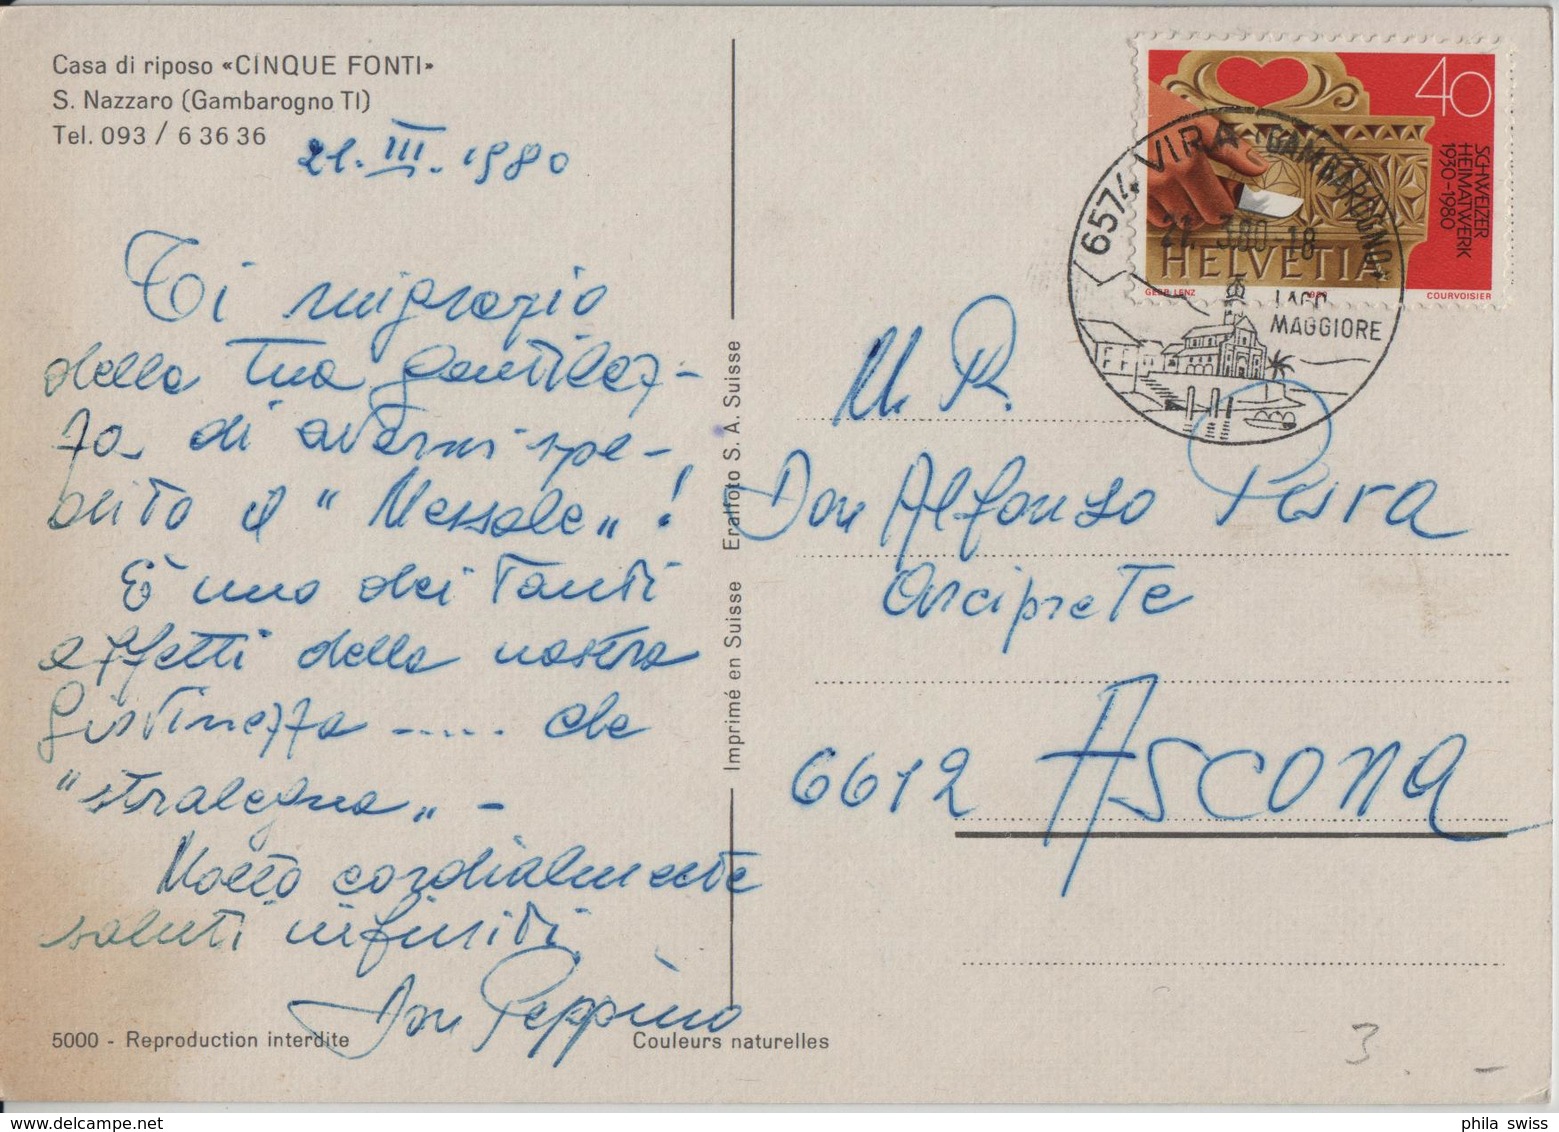 Casa di riposo «CINQUE FONTI»
S. Nazzaro (Gambarogno TI)
Tel. 093 / 6 36 36
21. III. 1980
Ti ringrazio
della tua gentilez-
za di avermi spe-
dito il "Messale"!
È uno dei tanti
effetti della nostra
giovinezza ...... che
"stralegna" -
Molto cordialmente
saluti infiniti
Don Peppino
5000 - Reproduction interdite
Couleurs naturelles
Imprimé en Suisse Eralfoto S. A. Suisse
40
SCHWEIZER
HEIMATWERK
1930-1980
HELVETIA
GEBR. LENZ 1980 COURVOISIER
6574 VIRA (GAMBAROGNO)
21. 3.80-18
LAGO
MAGGIORE
M. R.
Don Alfonso Pura
Arciprete
6612 Ascona
3. -
phila swiss